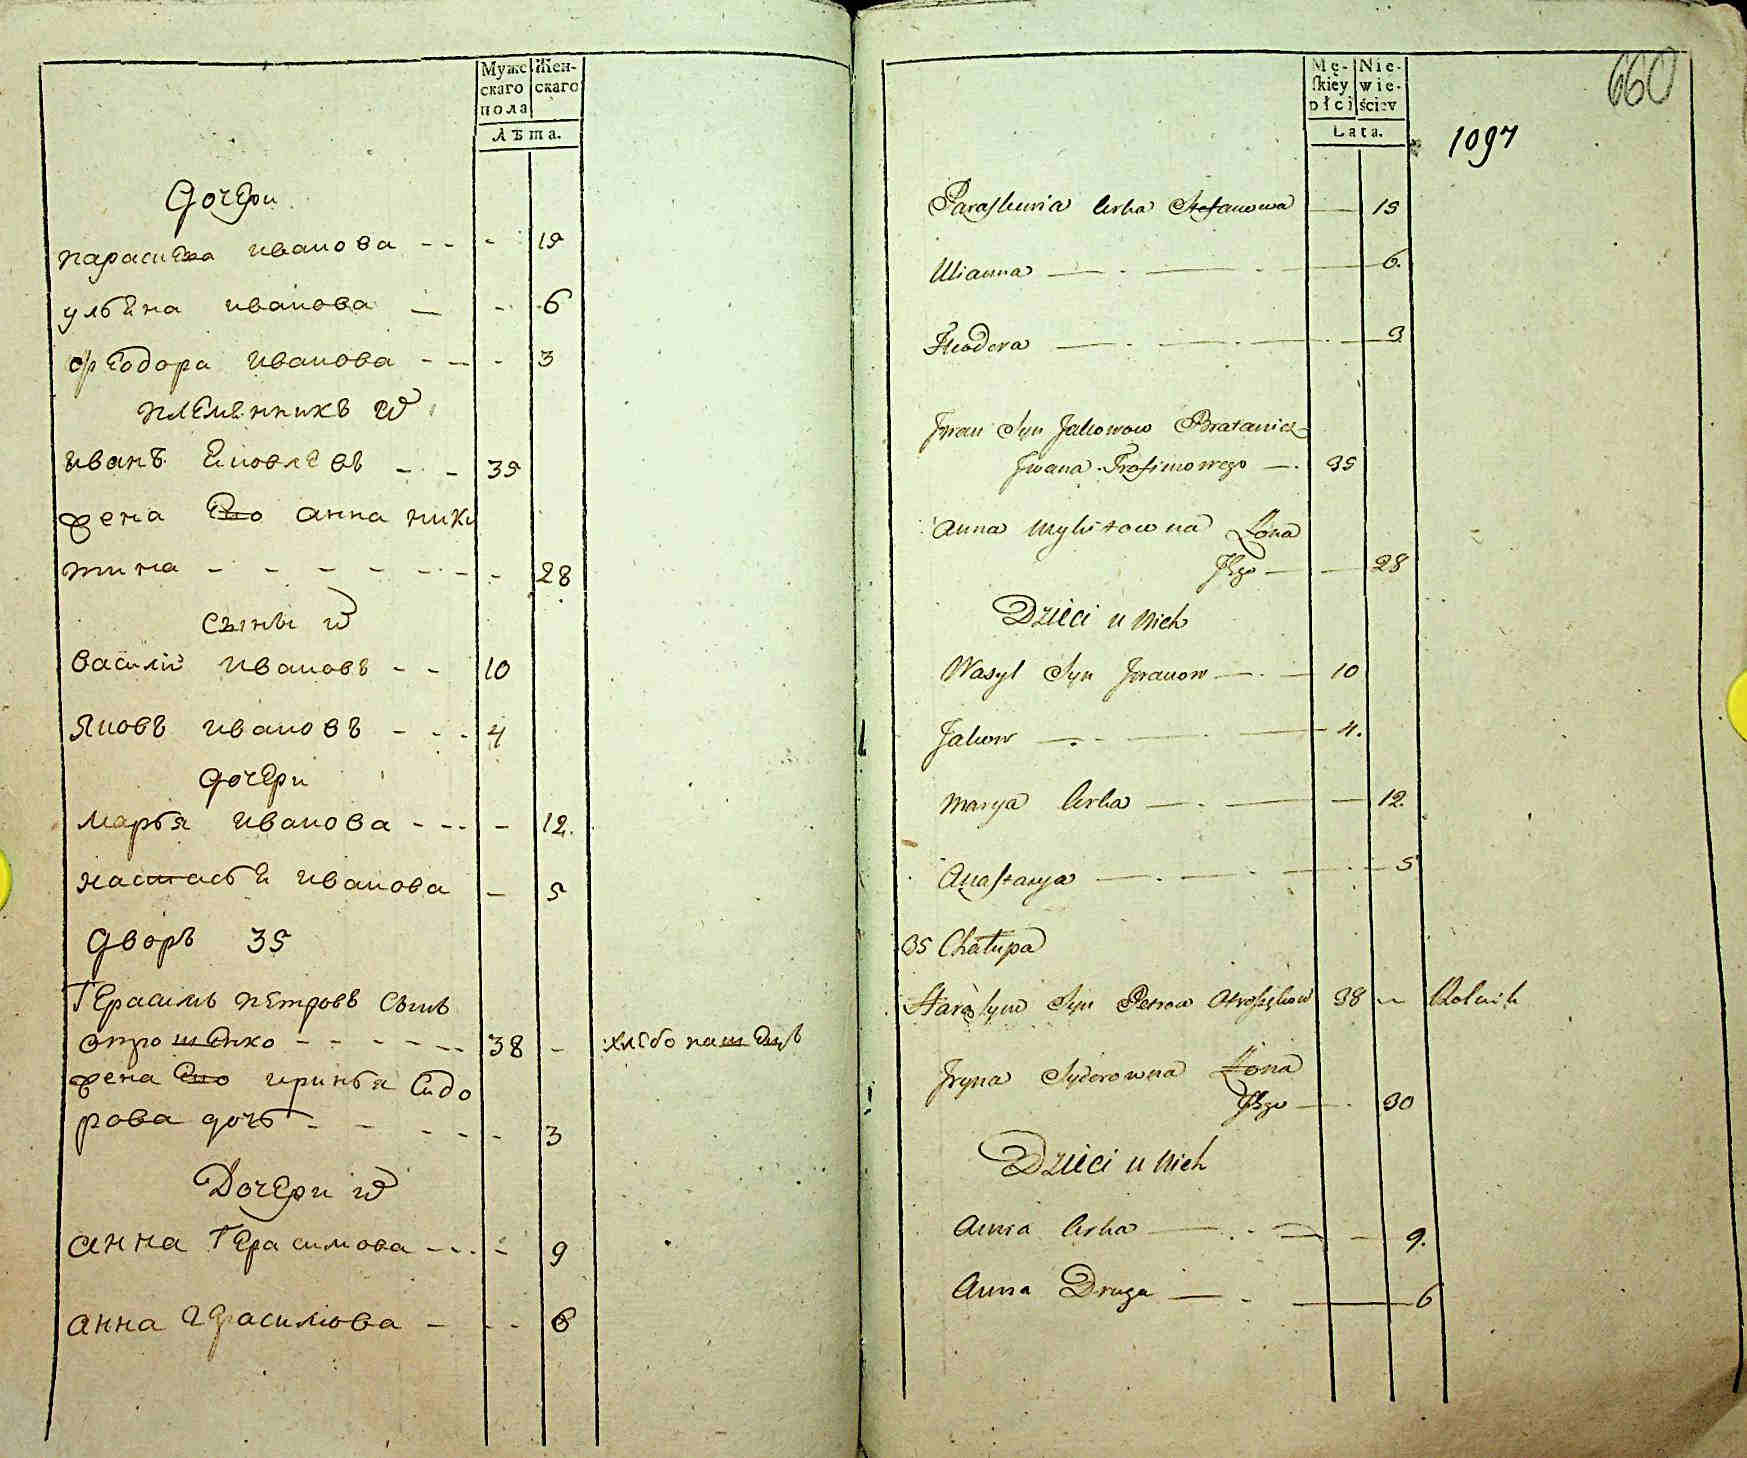 Мужс
скаго
пола
Жен-
скаго
Лѣта.
Дочери
парасиева иванова - - - 15
ульѣна иванова - - 6
феодора иванова - - - 3
племѣнникъ ѿ
иванъ яковлевъ - - 35
жена Его анна ники
тина - - - - - - - 28
сыны ѿ
василій ивановъ - - 10
яковъ ивановъ - - - 4
дочери
марья иванова - - - - 12.
настасьѣ иванова - 5
дворъ 35
Герасимъ петровъ сынъ
отрошенко - - - - - - 38 - хлебопашецъ
жена Его иринья Сидо
рова дочь - - - - - 3
Дочери ѿ
анна Герасимова - - - - 9
анна герасимова - - - 6
Mę-
skiey
płci
Nie-
wie-
ściey
Lata.
660
1097
Paraskiewia Corka Stefanowa 15
Ulianna 6.
Feodora 3
Jwan Syn Jakowow Bratanicz
Jwana Trofimowego 35
Anna Mykitowna Żona
Jego 28
Dzieci u Nich
Wasyl Syn Jwanow 10
Jakow 4.
Marya Corka 12.
Anastasya 5
35 Chałupa
Harasym Syn Petrow Atroszkow 38 Rolnik
Jryna Sydorowna Żona
Jego 30
Dzieci u Nich
Anna Corka 9.
Anna Druga 6